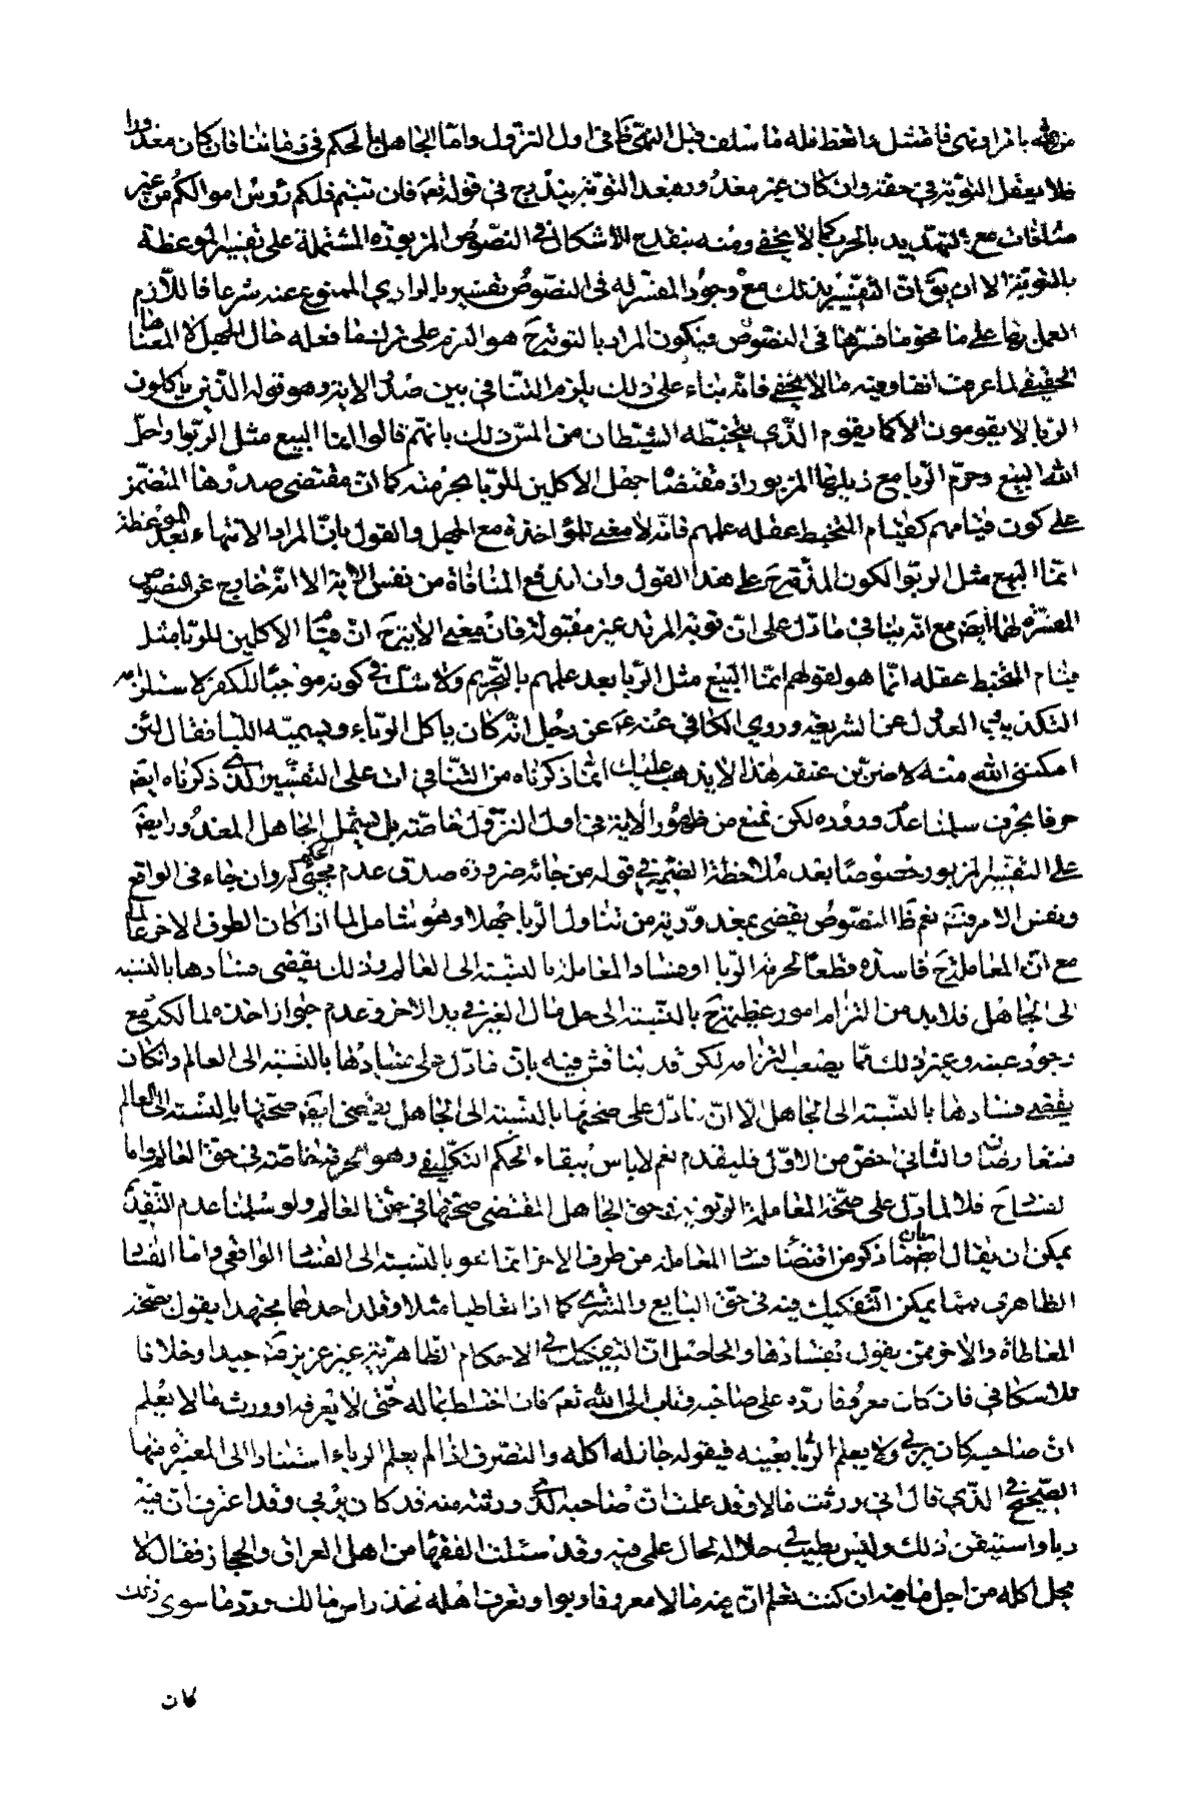 من الله بامر او نهى فامتثل فاتعظ فله ما سلف قبل النهى ظ فى اول النزول واما الجاهل بالحكم فى زماننا فان كان معذورا
فلا يعقل التوبة فى حقه وان كان غير معذور فبعد التوبة يندرج فى قوله تعم فان تبتم فلكم رؤس اموالكم من غير
منافات مع التهديد بالحرب كما لا يخفى ومنه ينقدح الاشكال فى النصوص المزبورة المشتملة على تفسير الموعظة
بالتوبة الا ان يق ان التفسير بذلك مع وجود المفسر له فى النصوص تفسير بالوارى الممنوع عنه شرعا فاللازم
العمل بها على ما هو ما فسرها فى النصوص فيكون المراد بالتوبة ح هو الندم على ترك ما فعله حال الجهل لا المعناها
الحقيقى لما عرفت انفا وفيه ما لا يخفى فانه بناء على ذلك يلزم التنافى بين صدر الاية وهو قوله الذين ياكلون
الربا لا يقومون الا كما يقوم الذى يتخبطه الشيطان من المس ذلك بانهم قالوا انما البيع مثل الربوا واحل
الله البيع وحرم الربا مع ذيلها المزبور اذ مقتضا جهل الاكلين للربا بحرمته كما ان مقتضى صدرها المتضمن
على كون قيامهم كقيام المتخبط عقله علمهم فانه لا معنى للمؤاخذة مع الجهل والقول بان المراد الانتهاء بعد الموعظة
انما البيع مثل الربوا لكون المذ قدح على هذا القول وان اندفع المنافاة من نفس الاية الا انه خارج عن النصوص
المفسرة لها ايض مع انه ينافى ما دل على ان توبة المرتد غير مقبولة فان معنى الاية ح ان قيام الاكلين للربا مثل
قيام المتخبط عقله انما هو لقولهم انما البيع مثل الربا بعد علمهم بالتحريم ولا شك فى كونه موجبا للكفر لاستلزامه
التكذيب العدل عن الشريعة وروى الكافى عنه ع عن رجل انه كان ياكل الرباء ويسميه اللبا فقال لئن
امكننى الله منه لاضربن عنقه هذا لا يذهب عليك ان ما ذكرناه من التنافى ات على التفسير الذى ذكرناه ايض
حرفا بحرف سلمنا عدم وروده لكن نمنع من ظهور الاية فى اول النزول خاصة بل يشمل الجاهل المعذور ايض
على التفسير المزبور خصوصا بعد ملاحظة الضمير فى قوله من جائه ضرورة صدق عدم مجئ الحكم وان جاء فى الواقع
ونفس الامر فت نعم ظ النصوص يقضى بمعذورية من تناول الربا جهلا وهو شامل لما اذا كان الطرف الاخر عالما
مع ان المعاملة ح فاسدة قطعا لحرمة الربا او فساد المعاملة بالنسبة الى العالم وذلك يقضى فسادها بالنسبة
الى الجاهل فلابد من التزام امور عظيمة ح بالنسبة الى حل مال الغير فى يد الاخر وعدم جواز اخذه لمالكه مع
وجود عينه وغير ذلك مما يصعب التزامه لكن قد يناقش فيه بان ما دل على فسادها بالنسبة الى العالم وان كان
يقضى فسادها بالنسبة الى الجاهل الا ان ما دل على صحتها بالنسبة الى الجاهل يقضى ايض صحتها بالنسبة الى العالم
فتعارضان والثانى اخص من الاول فليقدم نعم لا باس ببقاء الحكم التكليفى وهو الحرمة خاصة فى حق العالم واما
الفساد ح فلا لما دل على صحة المعاملة الربوية فى حق الجاهل المقتضى صحتها فى حق العالم ولو سلمنا عدم التقييد
يمكن ان يقال ايضا بان ما ذكر من اقتضاء فساد المعاملة من طرف الاخر انما هو بالنسبة الى الفساد الواقعى واما الفساد
الظاهرى فمما يمكن التفكيك فيه فى حق البايع والمشترى كما اذا تعاطيا مثلا وقلد احدهما مجتهدا يقول بصحة
المعاطاة والاخر ممن يقول بفسادها والحاصل ان التفكيك فى الاحكام الظاهرية غير عزيز قه جيدا وخلافا
للاسكافى فان كان معروفا رده على صاحبه وتاب الى الله تعم فان اختلط بماله حتى لا يعرفه او ورث مالا يعلم
ان صاحبه كان يربى ولا يعلم الربا بعينه فيقوله جاز له اكله والتصرف اذا لم يعلم الرباء استنادا الى المعتبرة منها
الصحيح فى الذى قال انى ورثت مالا وقد علمت ان صاحبه الذى ورثته منه قد كان يربى وقد اعرف ان فيه
ربا واستيقن ذلك وليس يطيب لى حلاله لحال علمى فيه وقد سئلت الفقهاء من اهل العراق والحجاز فقال لا
يحل اكله من اجل ما فيه ان كنت تعلم ان فيه مالا معروفا ربوا وتعرف اهله فخذ راس مالك ورد ما سوى ذلك
كان